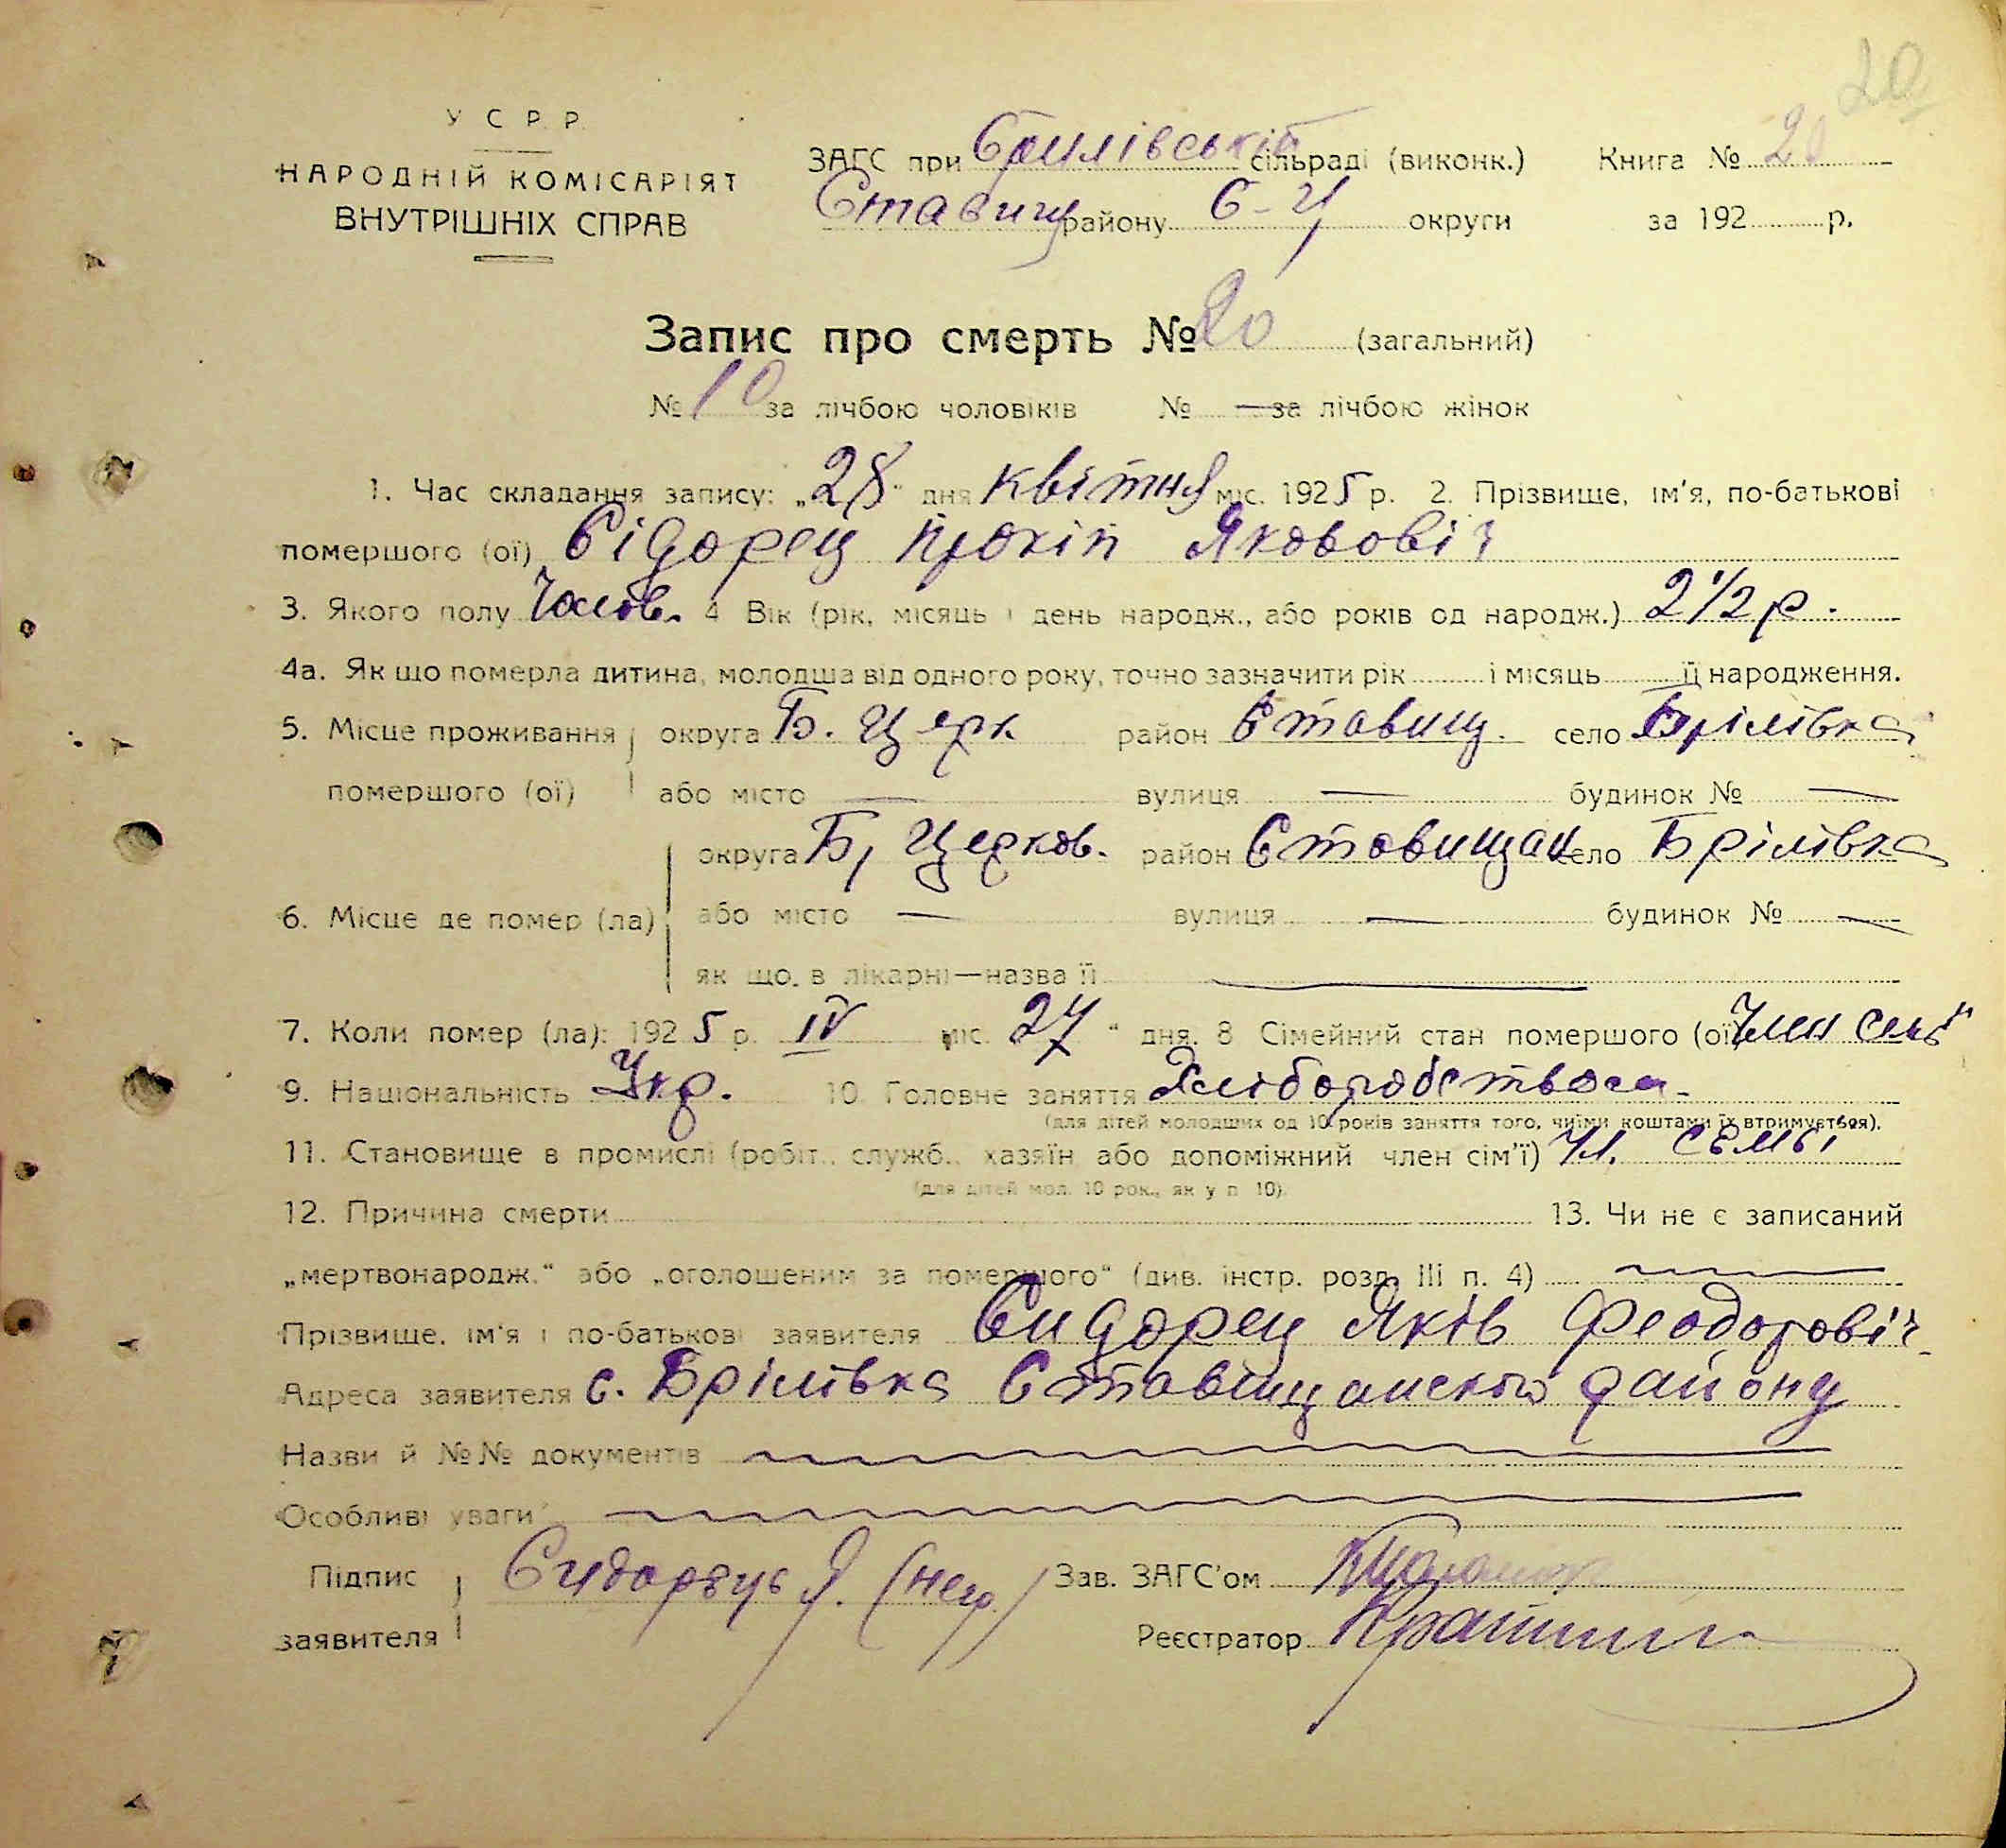 20
У С Р Р
НАРОДНІЙ КОМІСАРІЯТ
ВНУТРІШНІХ СПРАВ
ЗАГС при Брилівській сільраді (виконк.) Книга № 20
Ставищ району Б-Ц округи за 192 р.
Запис про смерть № 20 (загальний)
№ 10 за лічбою чоловіків № — за лічбою жінок
1. Час складання запису: „28“ дня квітня міс. 1925 р. 2. Прізвище, ім'я, по-батькові
помершого (ої) Сідорец Прокіп Якововіч
3. Якого полу Чолов. 4 Вік (рік, місяць і день народж., або років од народж.) 2 1/2 р.
4а. Як що померла дитина, молодша від одного року, точно зазначити рік і місяць її народження.
5. Місце проживання округа Б. Церк район Ставищ. село Брілівка
помершого (ої) або місто — вулиця — будинок № —
округа Б, Церков. район Ставищан село Брілівка
6. Місце де помер (ла) або місто — вулиця — будинок № —
як що в лікарні—назва її —
7. Коли помер (ла): 1925 р. IV міс. 27 “ дня. 8 Сімейний стан помершого (ої) Член
9. Національність Укр. 10 Головне заняття
(для дітей молодших од 10 років заняття того, чиїми коштами їх втримується).
11. Становище в промислі (робіт., служб., хазяїн або допоміжний член сім'ї) Чл. семьі
(для дітей мол. 10 рок., як у п 10)
12. Причина смерти 13. Чи не є записаний
„мертвонародж.“ або „оголошеним за помершого“ (див. інстр. розд. III п. 4)
Прізвище, ім'я і по-батькові заявителя Сидорец Яків Феодоровіч
Адреса заявителя с. Брілівка Ставіщанского району
Назви й №№ документів
Особливі уваги
Підпис Я. (нег) Зав. ЗАГС'ом
заявителя Реєстратор